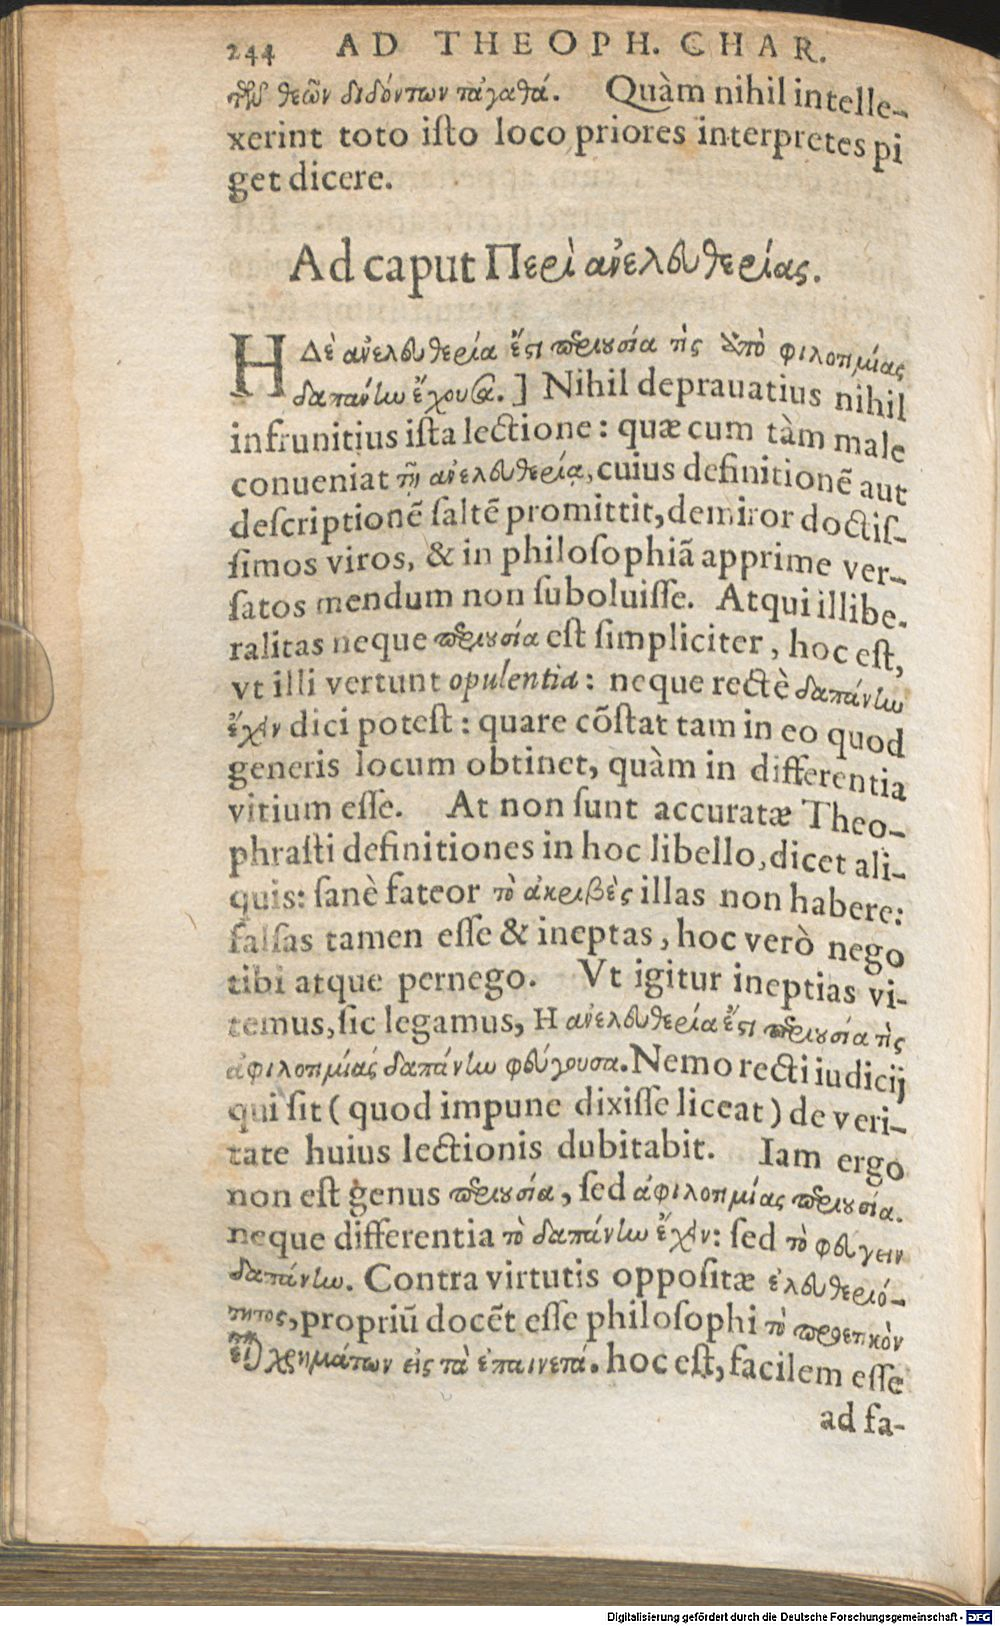 244 AD THEOPH. CHAR.
τῶν θεῶν διδόντων τἀγαθά. Quàm nihil intelle-
xerint toto iſto loco priores interpretes pi
get dicere.
Ad caput Περὶ ἀνελευθερίας.
Η Δὲ ἀνελευθερία ἔστι περιουσία τὶς ἀπὸ φιλοτιμίας
δαπάνην ἔχουσα.] Nihil deprauatius nihil
infrunitius iſta lectione: quæ cum tàm male
conueniat τῇ ἀνελευθερίᾳ, cuius definitionē aut
deſcriptionē ſaltē promittit, demiror doctiſ-
ſimos viros, & in philoſophiā apprime ver-
ſatos mendum non ſuboluiſſe. Atqui illibe-
ralitas neque περιουσία eſt ſimpliciter, hoc eſt,
vt illi vertunt opulentia: neque rectè δαπάνην
ἔχειν dici poteſt: quare cōſtat tam in eo quod
generis locum obtinet, quàm in differentia
vitium eſſe. At non ſunt accuratæ Theo-
phraſti definitiones in hoc libello, dicet ali-
quis: ſanè fateor τὸ ἀκριβὲς illas non habere:
falſas tamen eſſe & ineptas, hoc verò nego
tibi atque pernego. Vt igitur ineptias vi-
temus, ſic legamus, Η ἀνελευθερία ἔστι περιουσία τὶς
ἀφιλοτιμίας δαπάνην φεύγουσα. Nemo recti iudicij
qui ſit (quod impune dixiſſe liceat) de veri-
tate huius lectionis dubitabit. Iam ergo
non eſt genus περιουσία, ſed ἀφιλοτιμίας περιουσία.
neque differentia τὸ δαπάνην ἔχειν: ſed τὸ φεύγειν
δαπάνην. Contra virtutis oppoſitæ ἐλευθεριό-
τητος, propriū docēt eſſe philoſophi τὸ προετικὸν
εἶναι χρημάτων εἰς τὰ ἐπαινετά. hoc eſt, facilem eſſe
ad fa-
Digitalisierung gefördert durch die Deutsche Forschungsgemeinschaft - DFG